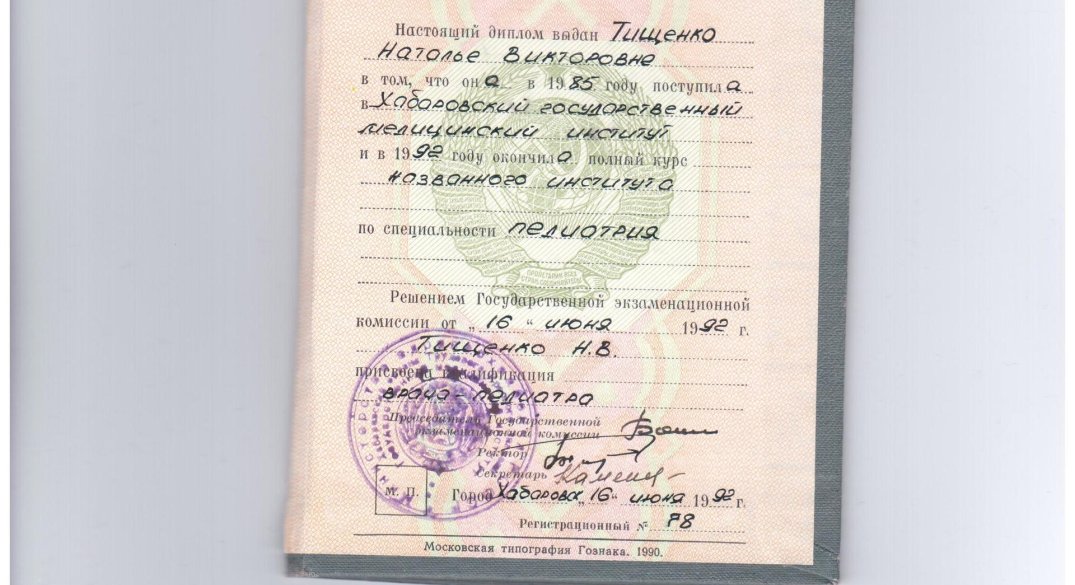 Настоящий диплом выдан Тищенко
Наталье Викторовне
в том, что она в 1985 году поступила
в Хабаровский государственный
медицинский институт
и в 1992 году окончила полный курс
названного института
по специальности педиатрия
ПРОЛЕТАРИИ ВСЕХ
СТРАН, СОЕДИНЯЙТЕСЬ!
Решением Государственной экзаменационной
комиссии от „16“ июня 1992 г.
Тищенко Н.В.
присвоена квалификация
врача-педиатра
Председатель Государственной
экзаменационной комиссии
Ректор
Секретарь
М. П.
Город Хабаровск „16“ июня 1992 г.
Регистрационный № 78
Московская типография Гознака. 1990.